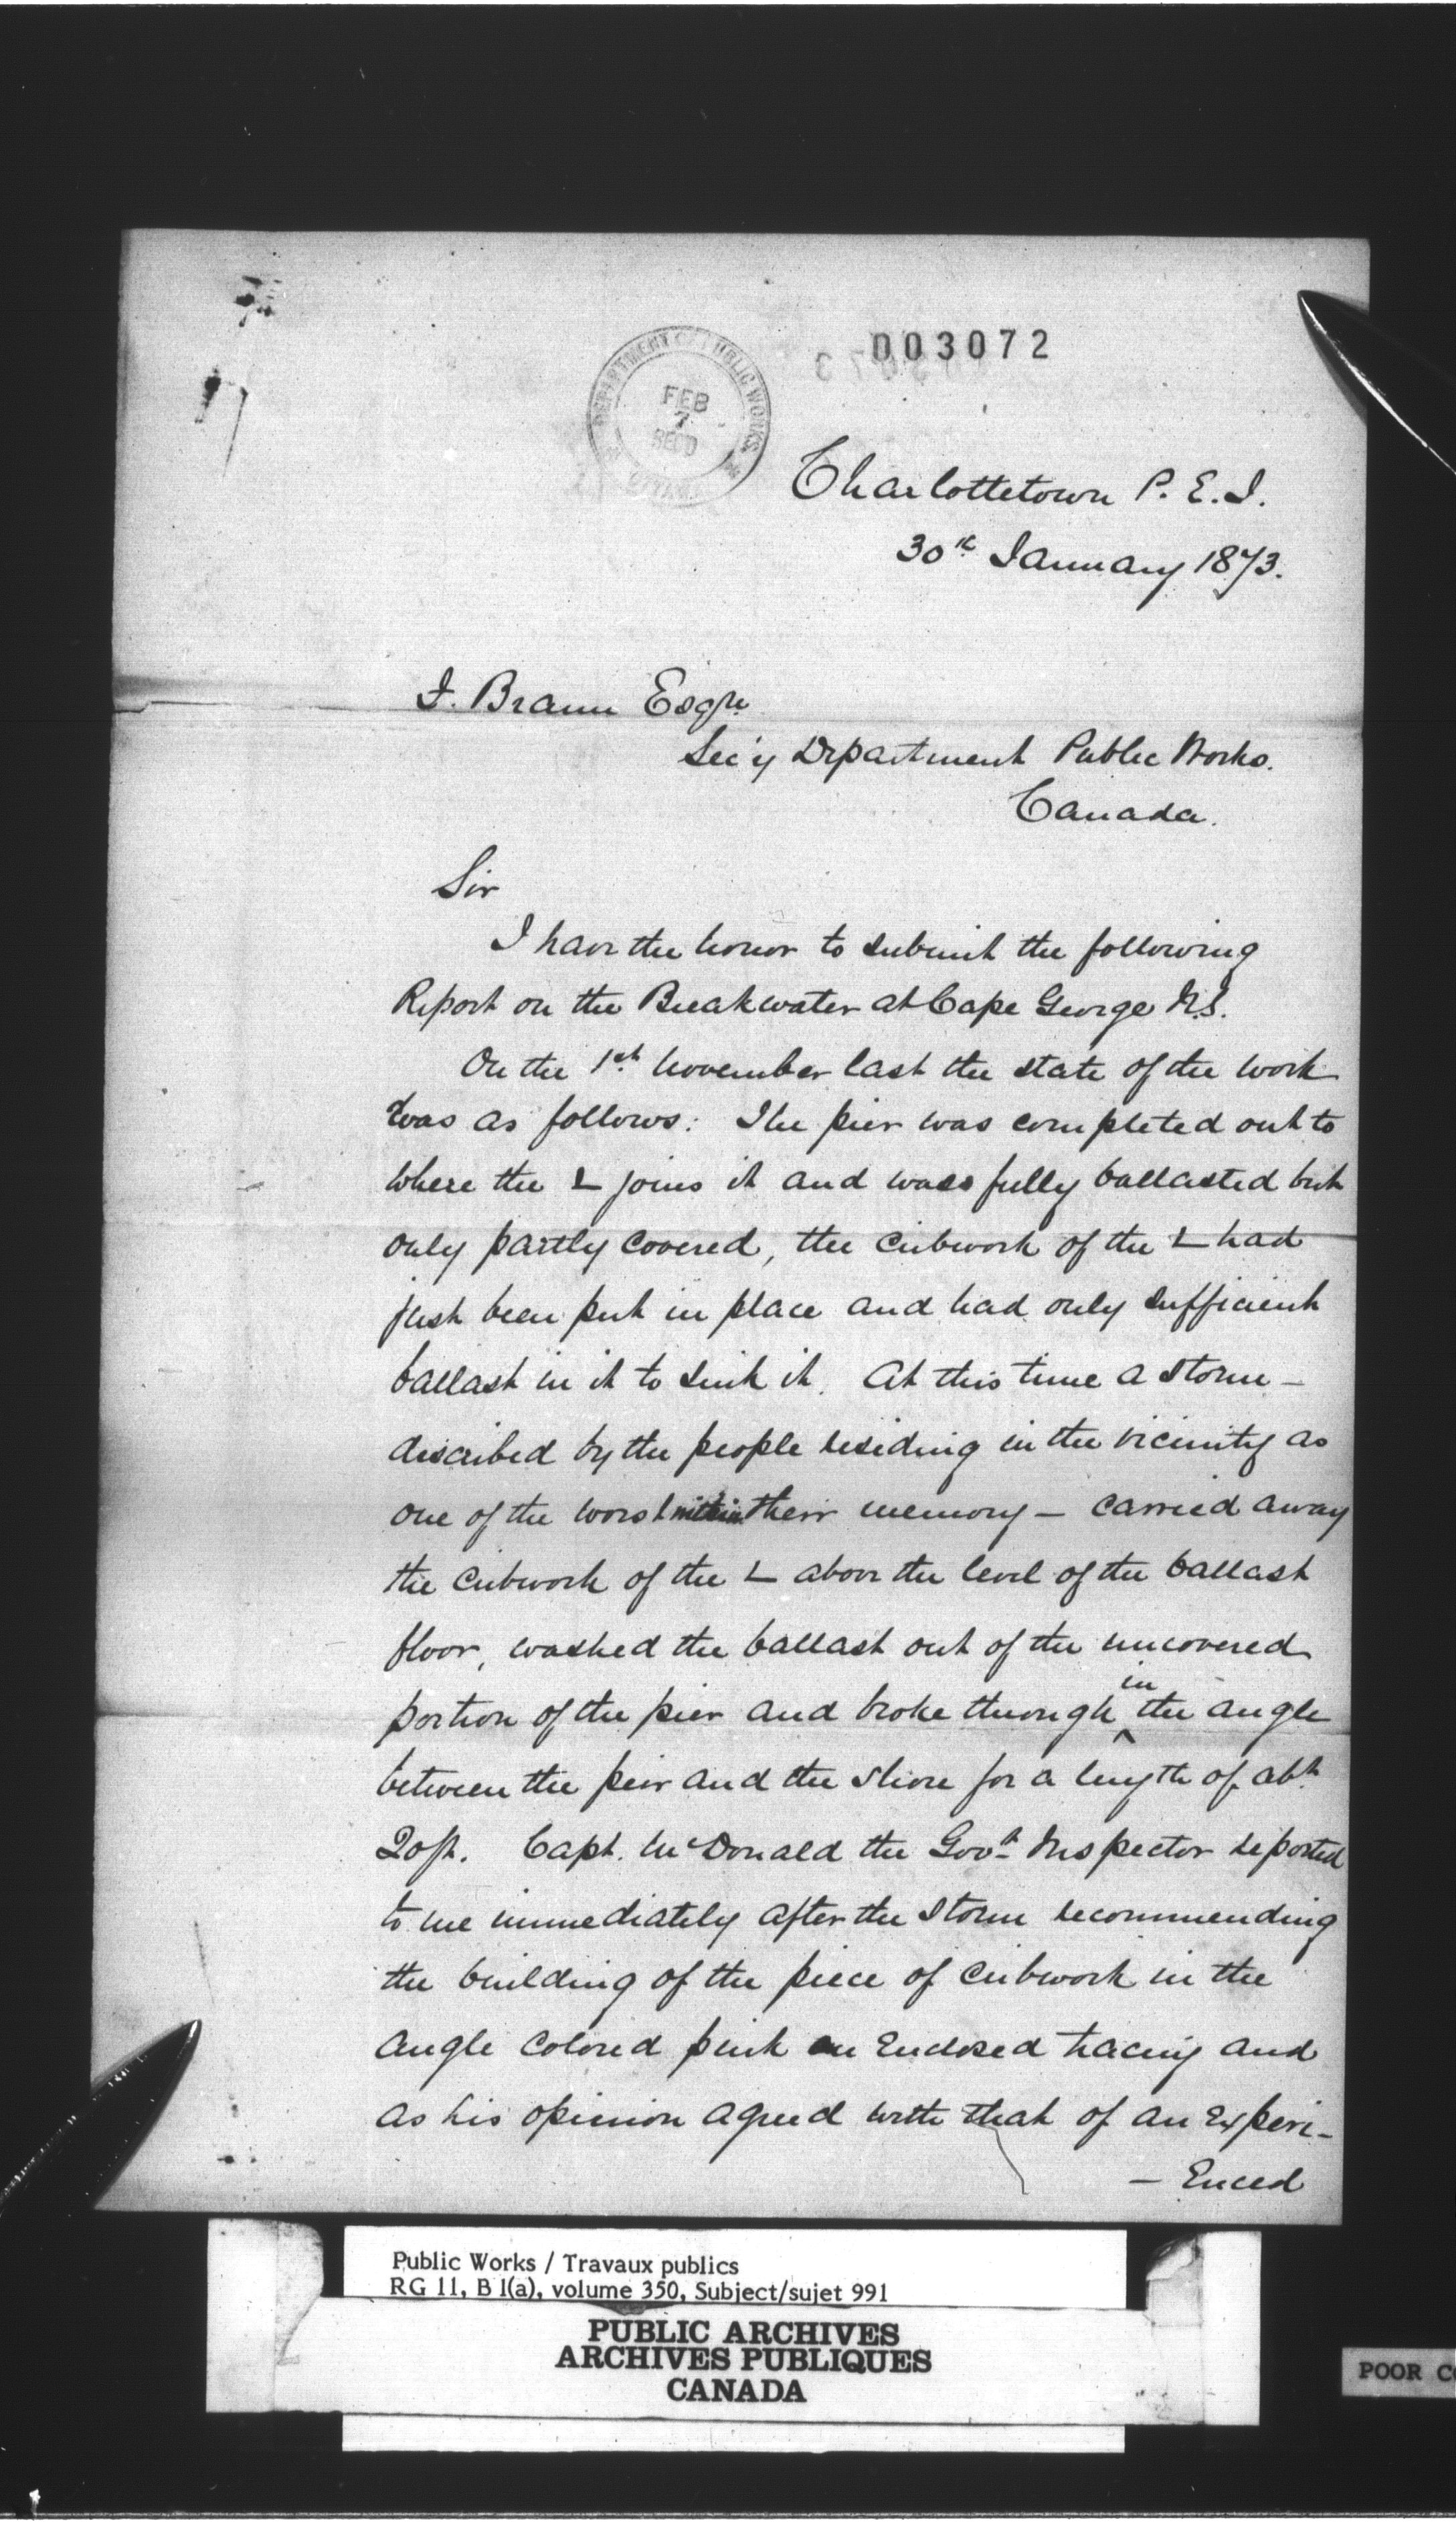 003072
DEPARTMENT OF PUBLIC WORKS
FEB
7
RECD
OTTAWA
Charlottetown P. E. I.
30th January 1873.
F. Braun Esqre
Sec'y Department Public Works.
Canada.
Sir
I have the honor to submit the following
Report on the Breakwater at Cape George N.S.
On the 1st November last the state of the work
was as follows: The pier was completed out to
where the L joins it and was fully ballasted but
only partly covered, the cribwork of the L had
just been put in place and had only sufficient
ballast in it to sink it. At this time a storm –
described by the people residing in the vicinity as
one of the worst within their memory – carried away
the cribwork of the L above the level of the ballast
floor, washed the ballast out of the uncovered
portion of the pier and broke through in the angle
between the pier and the shore for a length of abt
20 ft. Capt. McDonald the Govt Inspector reported
to me immediately after the storm recommending
the building of the piece of cribwork in the
angle colored pink on enclosed tracing and
as his opinion agreed with that of an experi-
– enced
Public Works / Travaux publics
RG 11, B 1(a), volume 350, Subject/sujet 991
PUBLIC ARCHIVES
ARCHIVES PUBLIQUES
CANADA
POOR